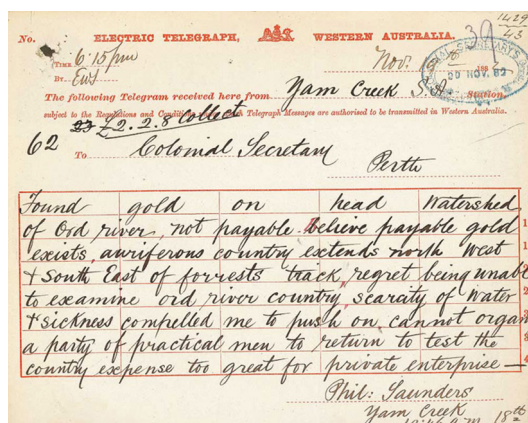 1429
43
3A
No. ELECTRIC TELEGRAPH, WESTERN AUSTRALIA.
TIME 6.15pm
Nov.
BY
188
20 NOV. 82
The following Telegram received here from Yam Creek S.A. Station,
subject to the Regulations and Conditions Telegraph Messages are authorised to be transmitted in Western Australia.
£2.2.8 collect
62 To Colonial Secretary
Perth
Found gold on head Watershed
of Ord river, not payable. believe payable gold
exists, auriferous country extends north West
& South East of forrests track, regret being unabl
to examine ord river country, scarcity of Water
& sickness compelled me to push on, cannot organ
a party of practical men to return to test the
country expense too great for private enterprise —
Phil: Saunders
Yam Creek
18th